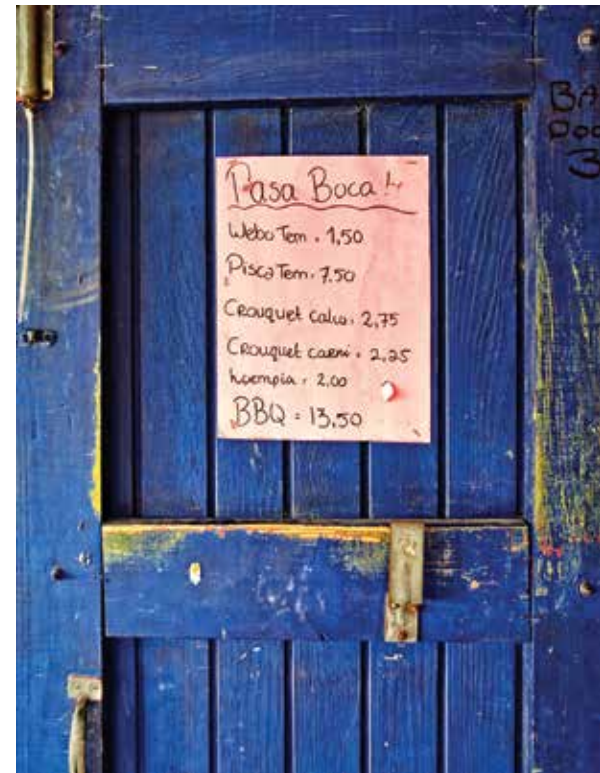 Pasa Boca!
Webo Tem . 1,50
Pisca Tem . 7.50
Crouquet calco . 2,75
Crouquet carni . 2,25
hoempia . 2.00
BBQ = 13.50
BA
3